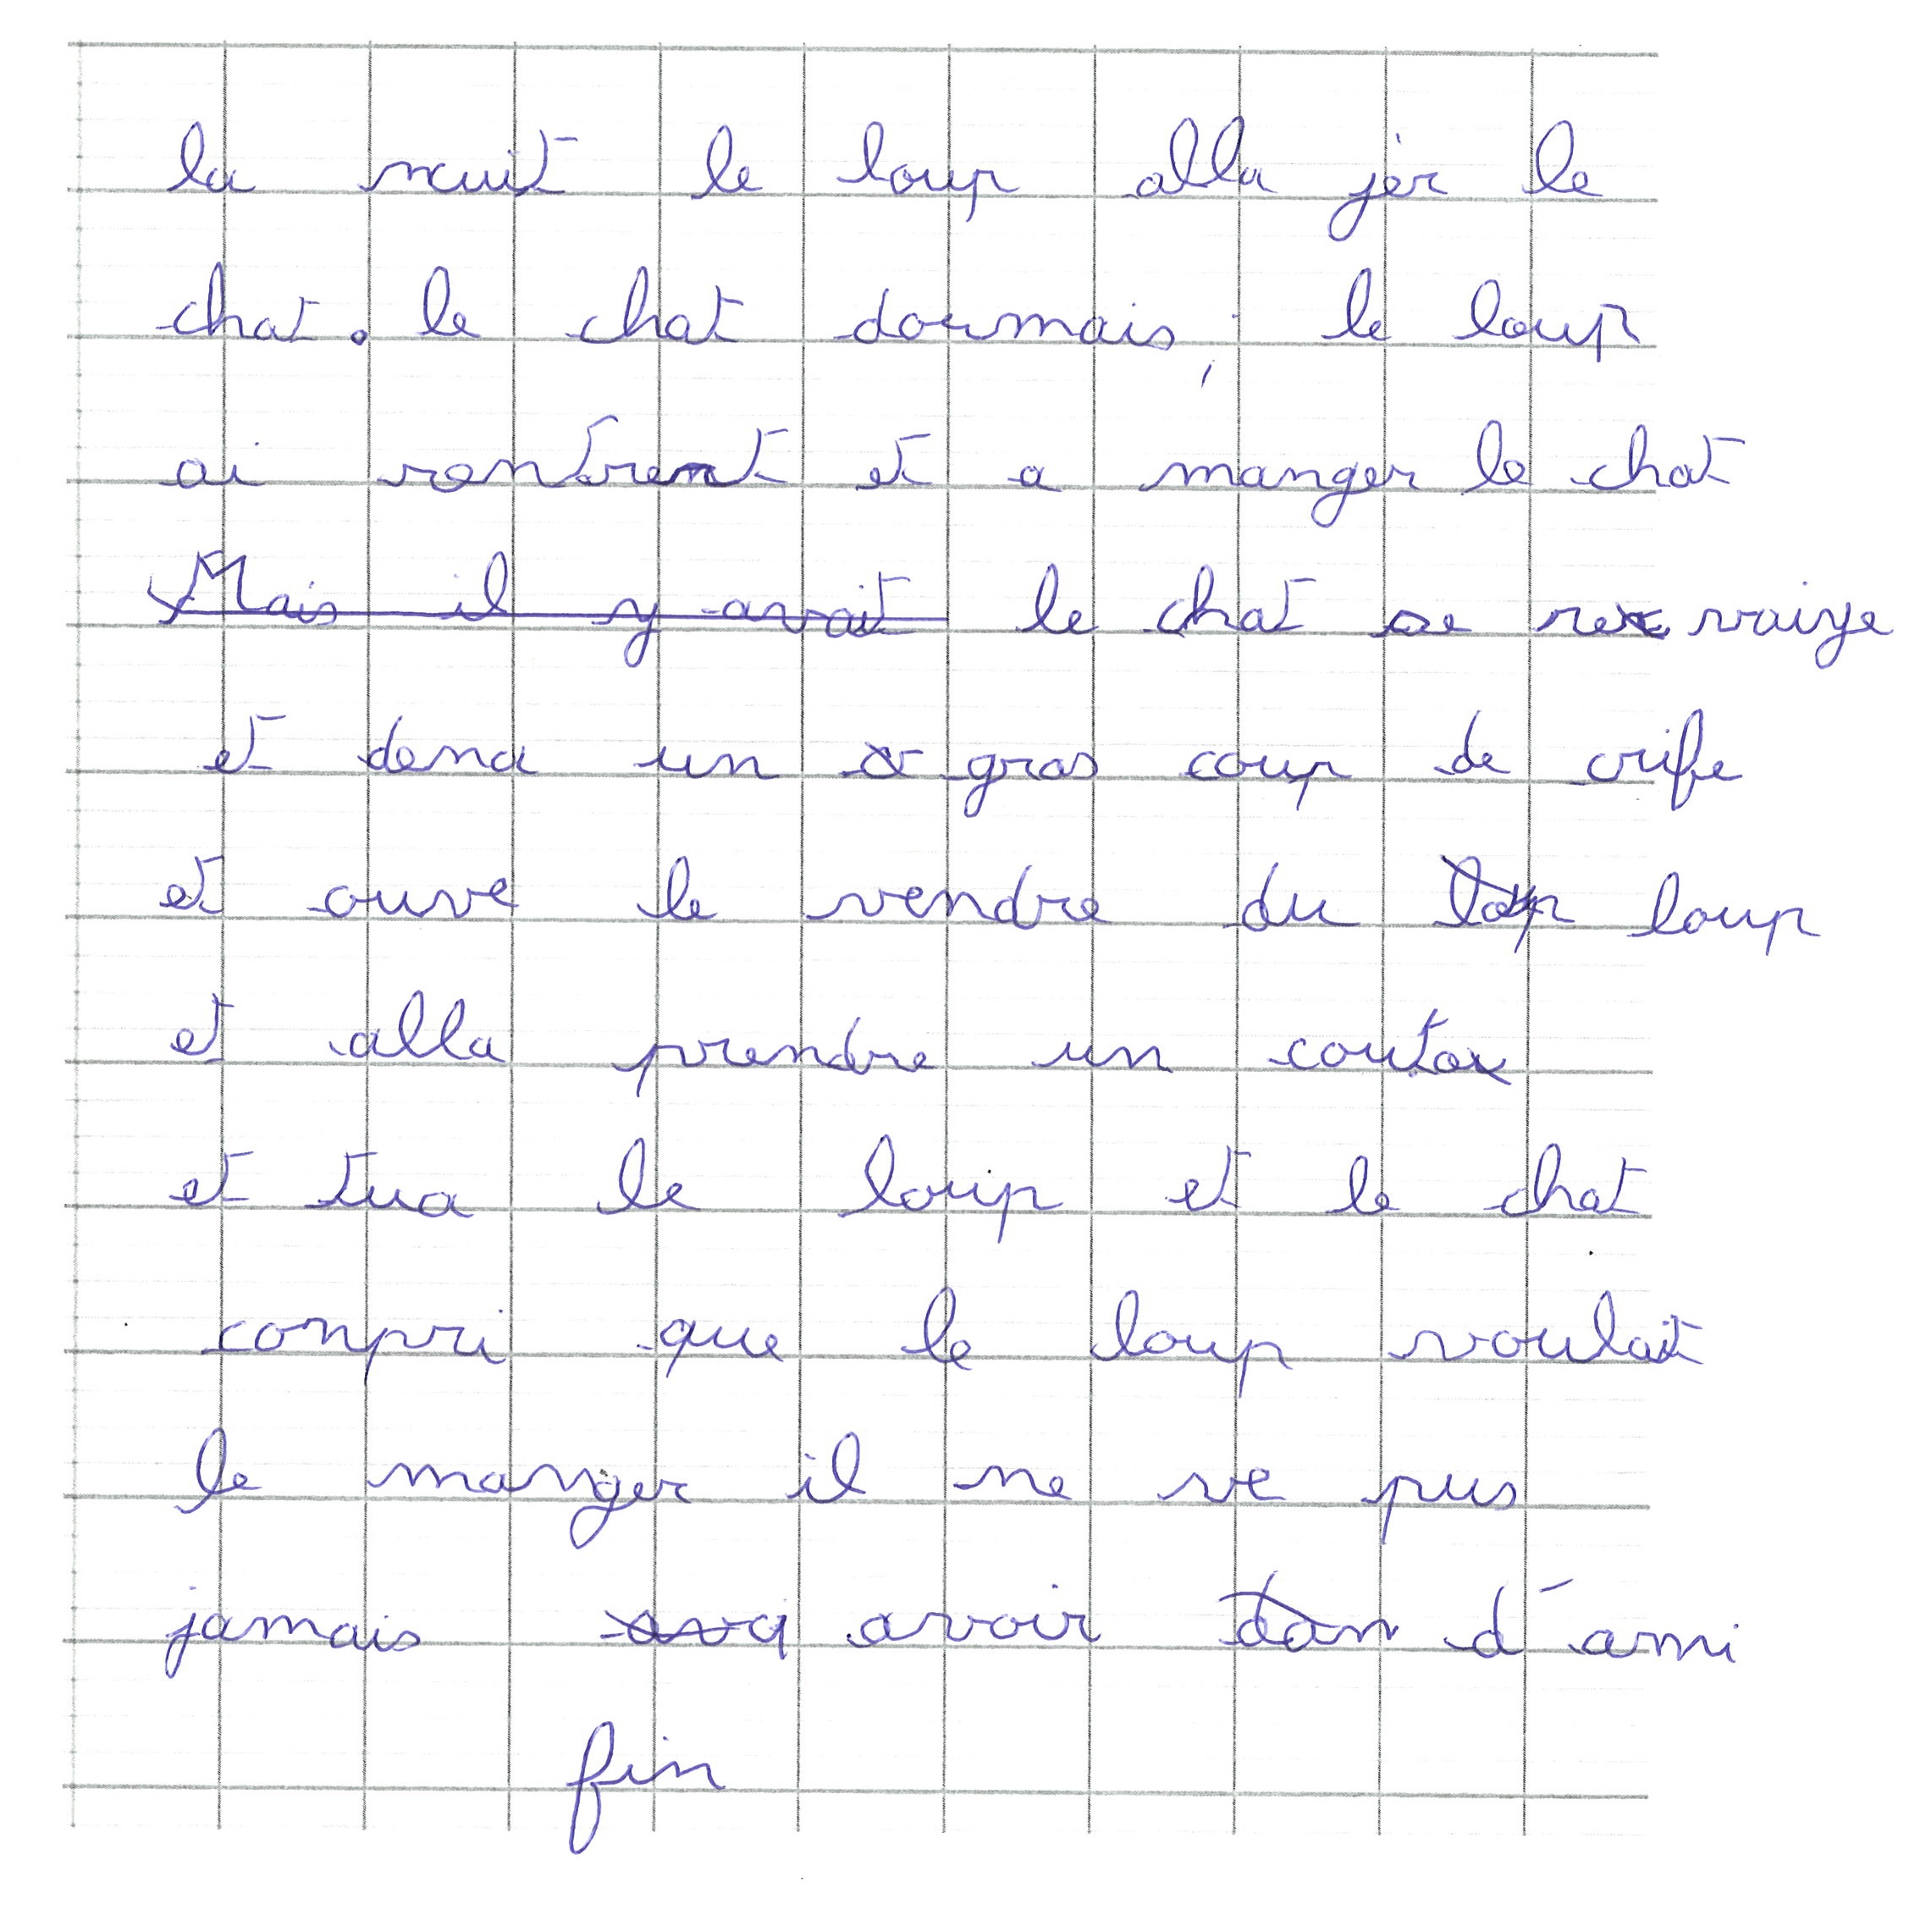 la nuit le loup alla jèr le
chat. le chat dourmais, le loup
ai rentrent et a manger le chat
~~Mais il y avait~~ le chat se re vaiye
et dona un gros coup de crife
et ouve le vendre du ~~lop~~ loup
et alla prendre un coutox
et tua le loup et le chat
conpri que le loup voulait
le manger il ne ve pus
jamais avoir ~~dan~~ d'ami
fin